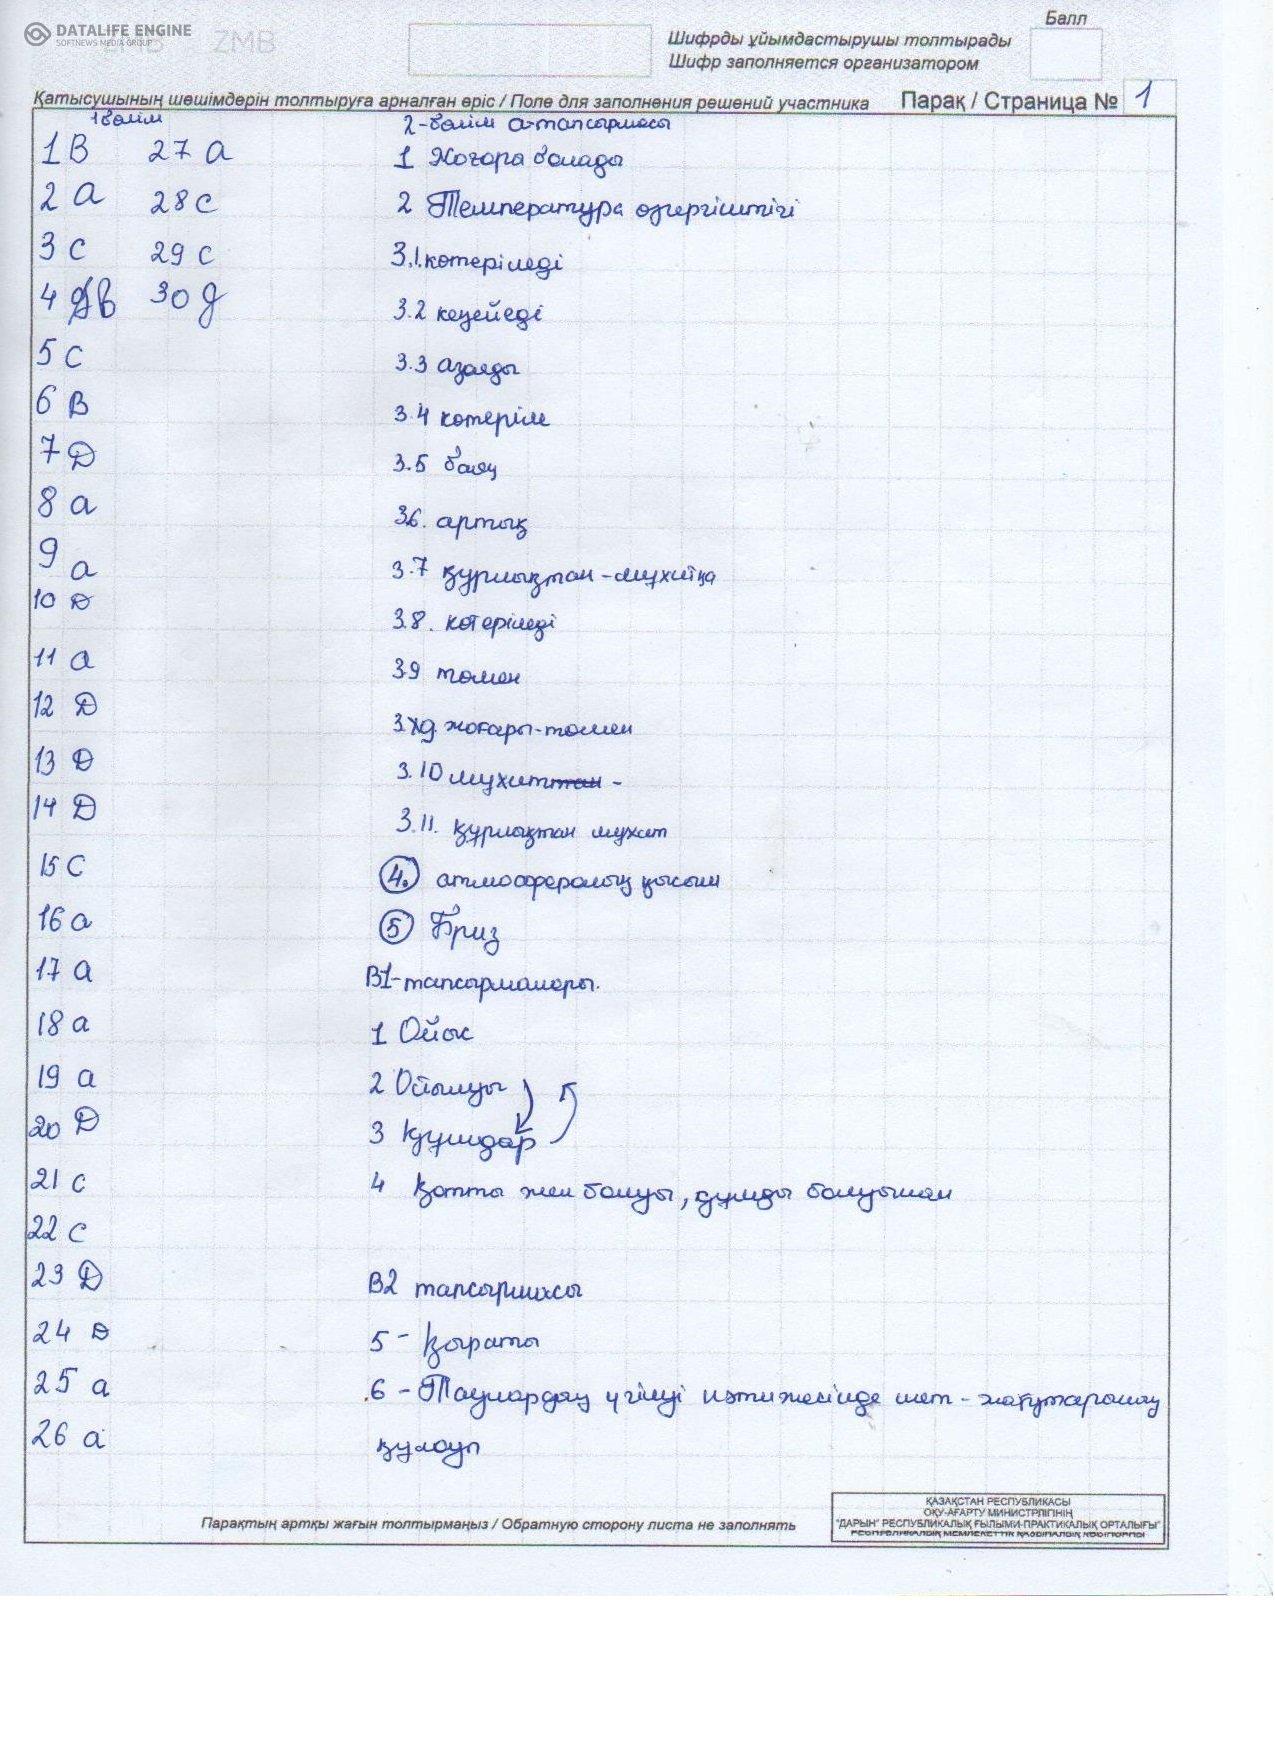 DATALIFE ENGINE
SOFTNEWS MEDIA GROUP
ZMB
Балл
Шифрды ұйымдастырушы толтырады
Шифр заполняется организатором
Қатысушының шешімдерін толтыруға арналған өріс / Поле для заполнения решений участника
Парақ / Страница № 1
1 бөлім
1 В
27 а
2 а
28 с
3 с
29 с
4 В
30 д
5 с
6 В
7 D
8 а
9 а
10 D
11 а
12 D
13 D
14 D
15 С
16 а
17 а
18 а
19 а
20 D
21 с
22 с
23 D
24 D
25 а
26 а
2-бөлім а-тапсырмасы
1 Жоғара болады
2 Температура өзгергіштігі
3.1. көтеріледі
3.2 кеңейеді
3.3 азаяды
3.4 көтеріле
3.5 баяу
3.6. артық
3.7 құрлықтан-мұхитқа
3.8. көтеріледі
3.9 төмен
жоғары-төмен
3.10 мұхиттан -
3.11. құрлықтан мұхит
4. атмосфералық қысым
5 Бриз
В1-тапсырмалары.
1 Ойыс
2 Ойылуы
3 Құмдар
4 Қатты жел болуы, құмды болуымен
В2 тапсырмасы
5 - Қыраты
6 - Таулардың үгілуі нәтижесінде шет-
құлауы
Парақтың артқы жағын толтырмаңыз / Обратную сторону листа не заполнять
ҚАЗАҚСТАН РЕСПУБЛИКАСЫ
ОҚУ-АҒАРТУ МИНИСТРЛІГІНІҢ
"ДАРЫН" РЕСПУБЛИКАЛЫҚ ҒЫЛЫМИ-ПРАКТИКАЛЫҚ ОРТАЛЫҒЫ"